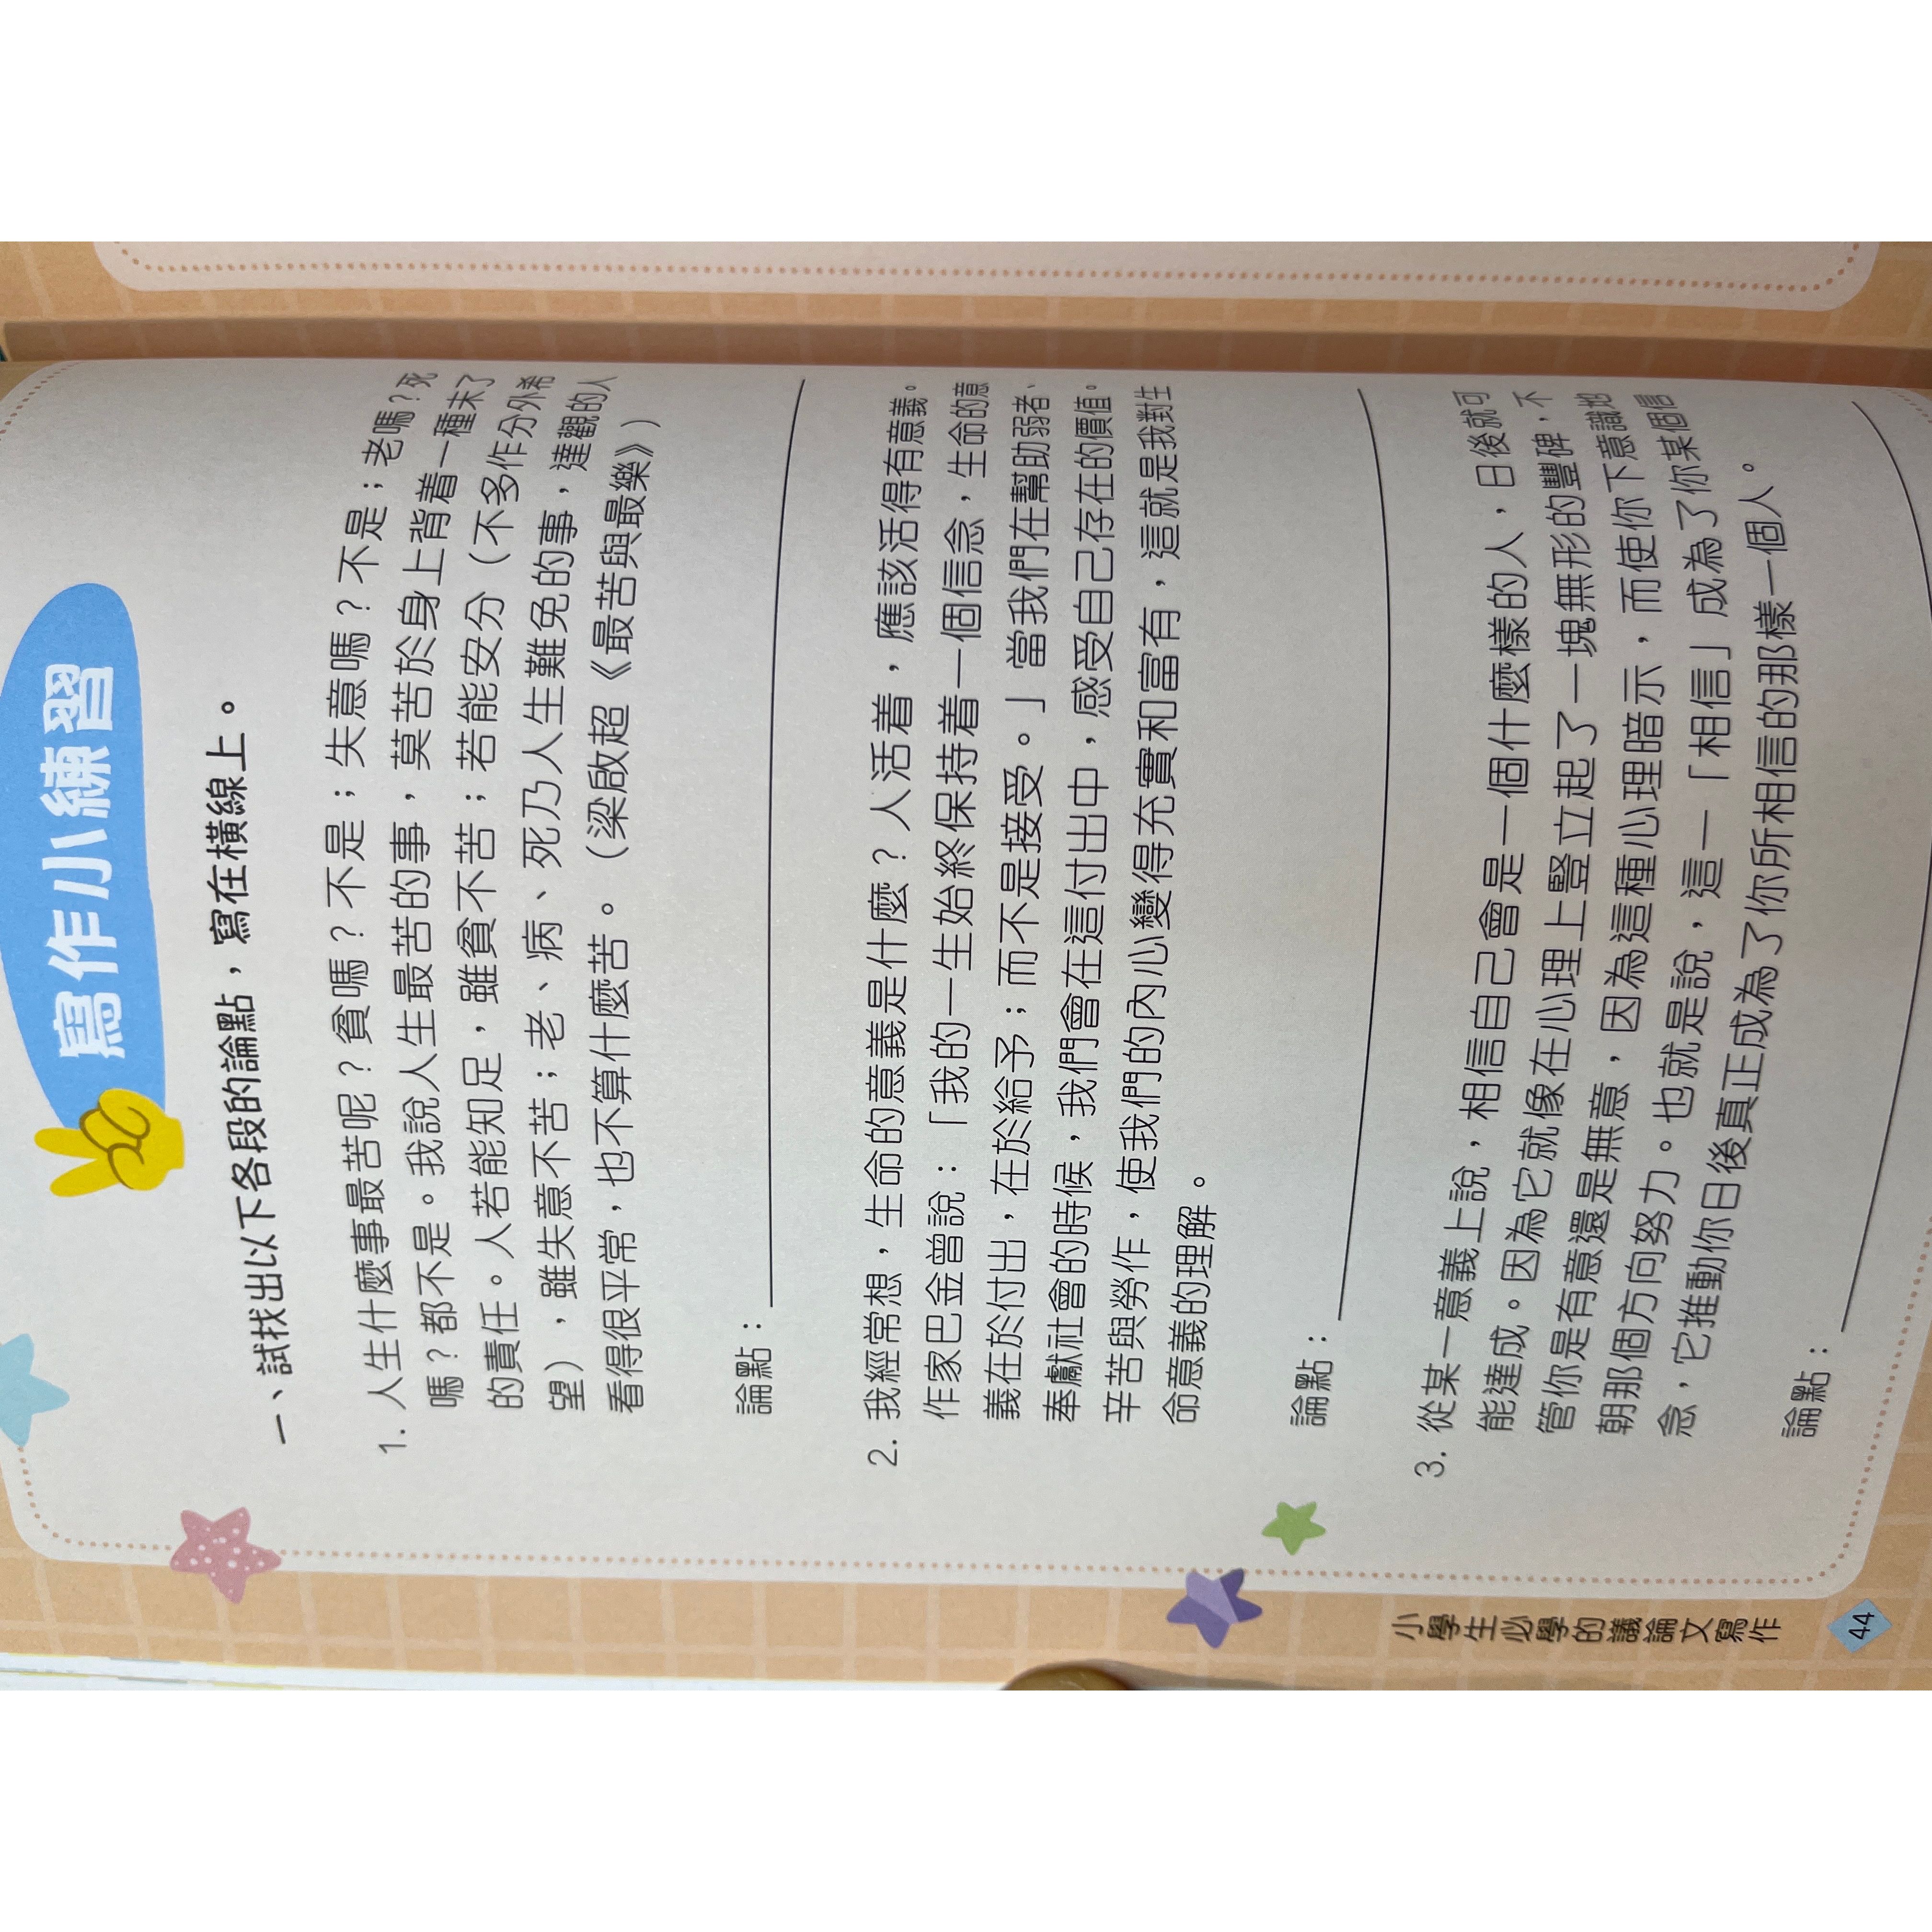 寫作小練習
一、試找出以下各段的論點，寫在橫線上。
1. 人生什麼事最苦呢？貧嗎？不是；失意嗎？不是；老嗎？死
嗎？都不是。我說人生最苦的事，莫苦於身上背着一種未了
的責任。人若能知足，雖貧不苦；若能安分（不多作分外希
望），雖失意不苦；老、病、死乃人生難免的事，達觀的人
看得很平常，也不算什麼苦。（梁啟超《最苦與最樂》）
論點：
2. 我經常想，生命的意義是什麼？人活着，應該活得有意義。
作家巴金曾說：「我的一生始終保持着一個信念，生命的意
義在於付出，在於給予；而不是接受。」當我們在幫助弱者、
奉獻社會的時候，我們會在這付出中，感受自己存在的價值。
辛苦與勞作，使我們的內心變得充實和富有，這就是我對生
命意義的理解。
論點：
3. 從某一意義上說，相信自己會是一個什麼樣的人，日後就可
能達成。因為它就像在心理上豎立起了一塊無形的豐碑，不
管你是有意還是無意，因為這種心理暗示，而使你下意識地
朝那個方向努力。也就是說，這一「相信」成為了你某個信
念，它推動你日後真正成為了你所相信的那樣一個人。
論點：
小學生必學的議論文寫作
44